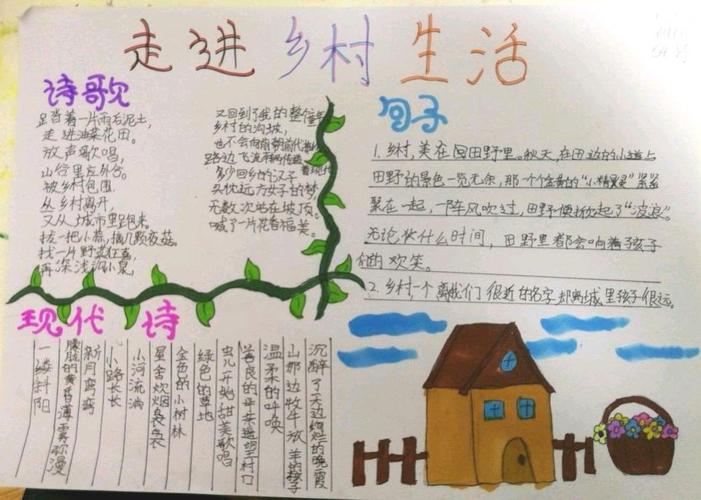 走进乡村生活
诗歌
足沓着一片雨后泥土,
走进油菜花田。
放声歌唱,
山谷里左外谷。
被乡村包围
从乡村离开,
又从城市里跑来。
拔一把小蒜,摘几颗夜菇。
找一片野菜狂喜,
再深浅
又回到了我的整个
乡村的沟坡,
也不会向
路边飞流
多少回乡的汉子
头枕远方女子的梦
无数次站在坡顶。
喊了一片花香福美。
句子
1. 乡村,美在田野里。秋天,在田边的小道上
田野的景色一览无余,那一个个金黄的“小精灵”紧紧
聚在一起,一阵风吹过,田野便掀起了“波浪”。
无论什么时间,田野里都会响着孩子
们的欢笑。
2. 乡村一个离我们很近的名字却离城里孩子很远。
现代诗
一缕斜阳
朦胧的黄昏薄雾弥漫
新月弯弯
小路长长
小河流淌
星舍炊烟袅袅
金色的小树林
绿色的草地
虫儿开始甜美歌唱
善良的母亲走到村口
温柔的呼唤
山那边牧牛放羊的孩子
沉醉了天边绚烂的晚霞